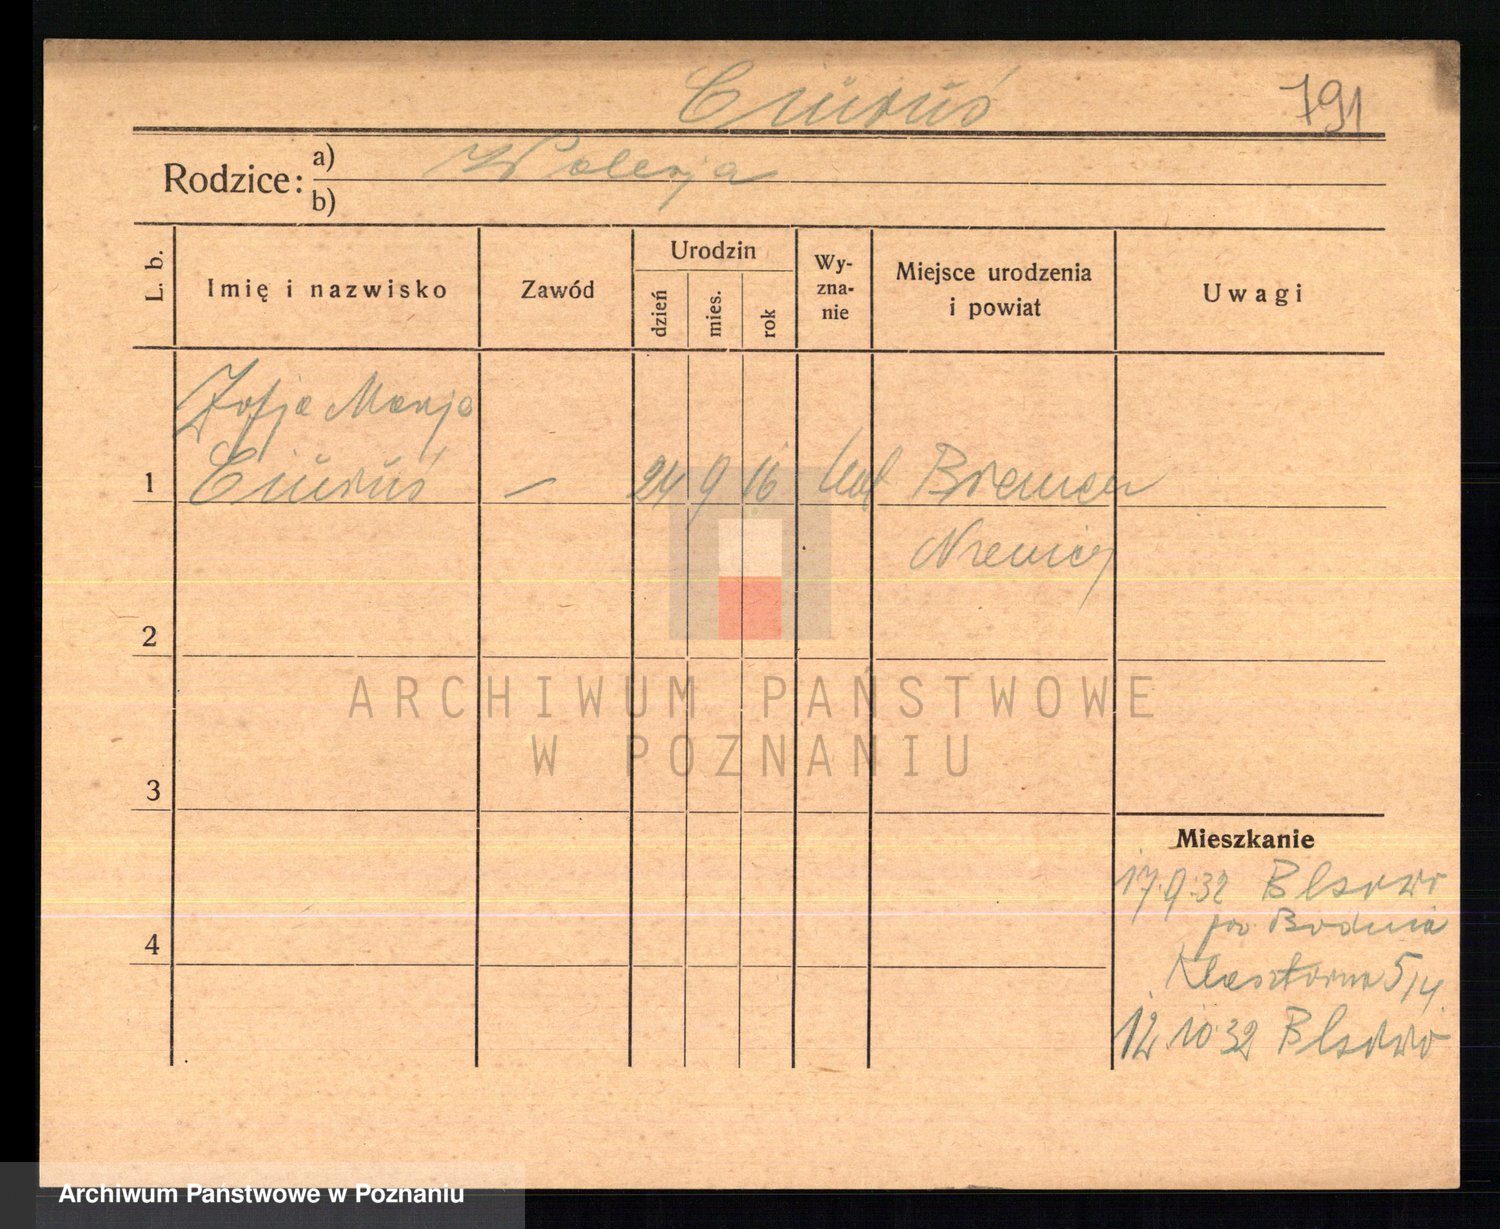 Ciuruś
791
Rodzice: a) Walerja
b)
L. b.
Imię i nazwisko
Zawód
Urodzin
dzień
mies.
rok
Wy-
zna-
nie
Miejsce urodzenia
i powiat
Uwagi
Zofja Marja
1 Ciuruś — 24 9 16 kat Bremen
Niemcy
2
3
ARCHIWUM PAŃSTWOWE
W POZNANIU
Mieszkanie
17.9.32
4
Klasztorna 5/14
12.10 32
Archiwum Państwowe w Poznaniu